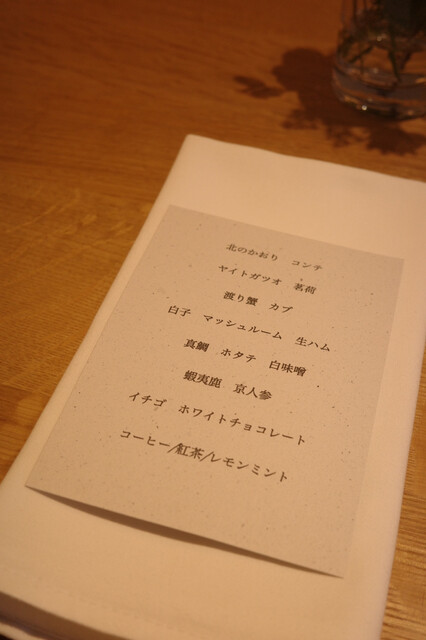 北のかおり　コンテ
ヤイトガツオ　茗荷
渡り蟹　カブ
白子　マッシュルーム　生ハム
真鯛　ホタテ　白味噌
蝦夷鹿　京人参
イチゴ　ホワイトチョコレート
コーヒー/紅茶/レモンミント